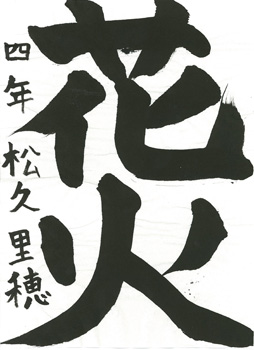 花火
四年 松久里穂